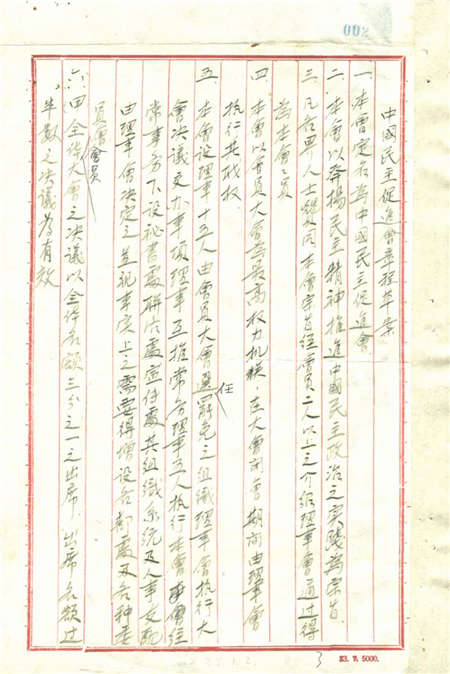 002
中國民主促進會章程草案
一 本會定名為中國民主促進會
二 本會以發揚民主精神推進中國民主政治之实踐為宗旨
三 凡各界人士贊同本會宗旨經會員二人以上之介紹理事會通过得
為本會會員
四 本會以會員大會為最高权力机関．在大會闭會期间由理事會
执行其职权
五 本會设理事十五人由會員大會選任罷免之组織理事會执行大
會决議交办事项理事互推常务理事三人执行本會會经
常事务下设秘書處联络處宣传處其组織系统及人事支配
由理事會决定之並視事实上之需要得增设各部處及各种委
員會會員
六 全体大會之决議以全体名额三分之一之出席．出席名额过
半数之决議為有效
3
5000.